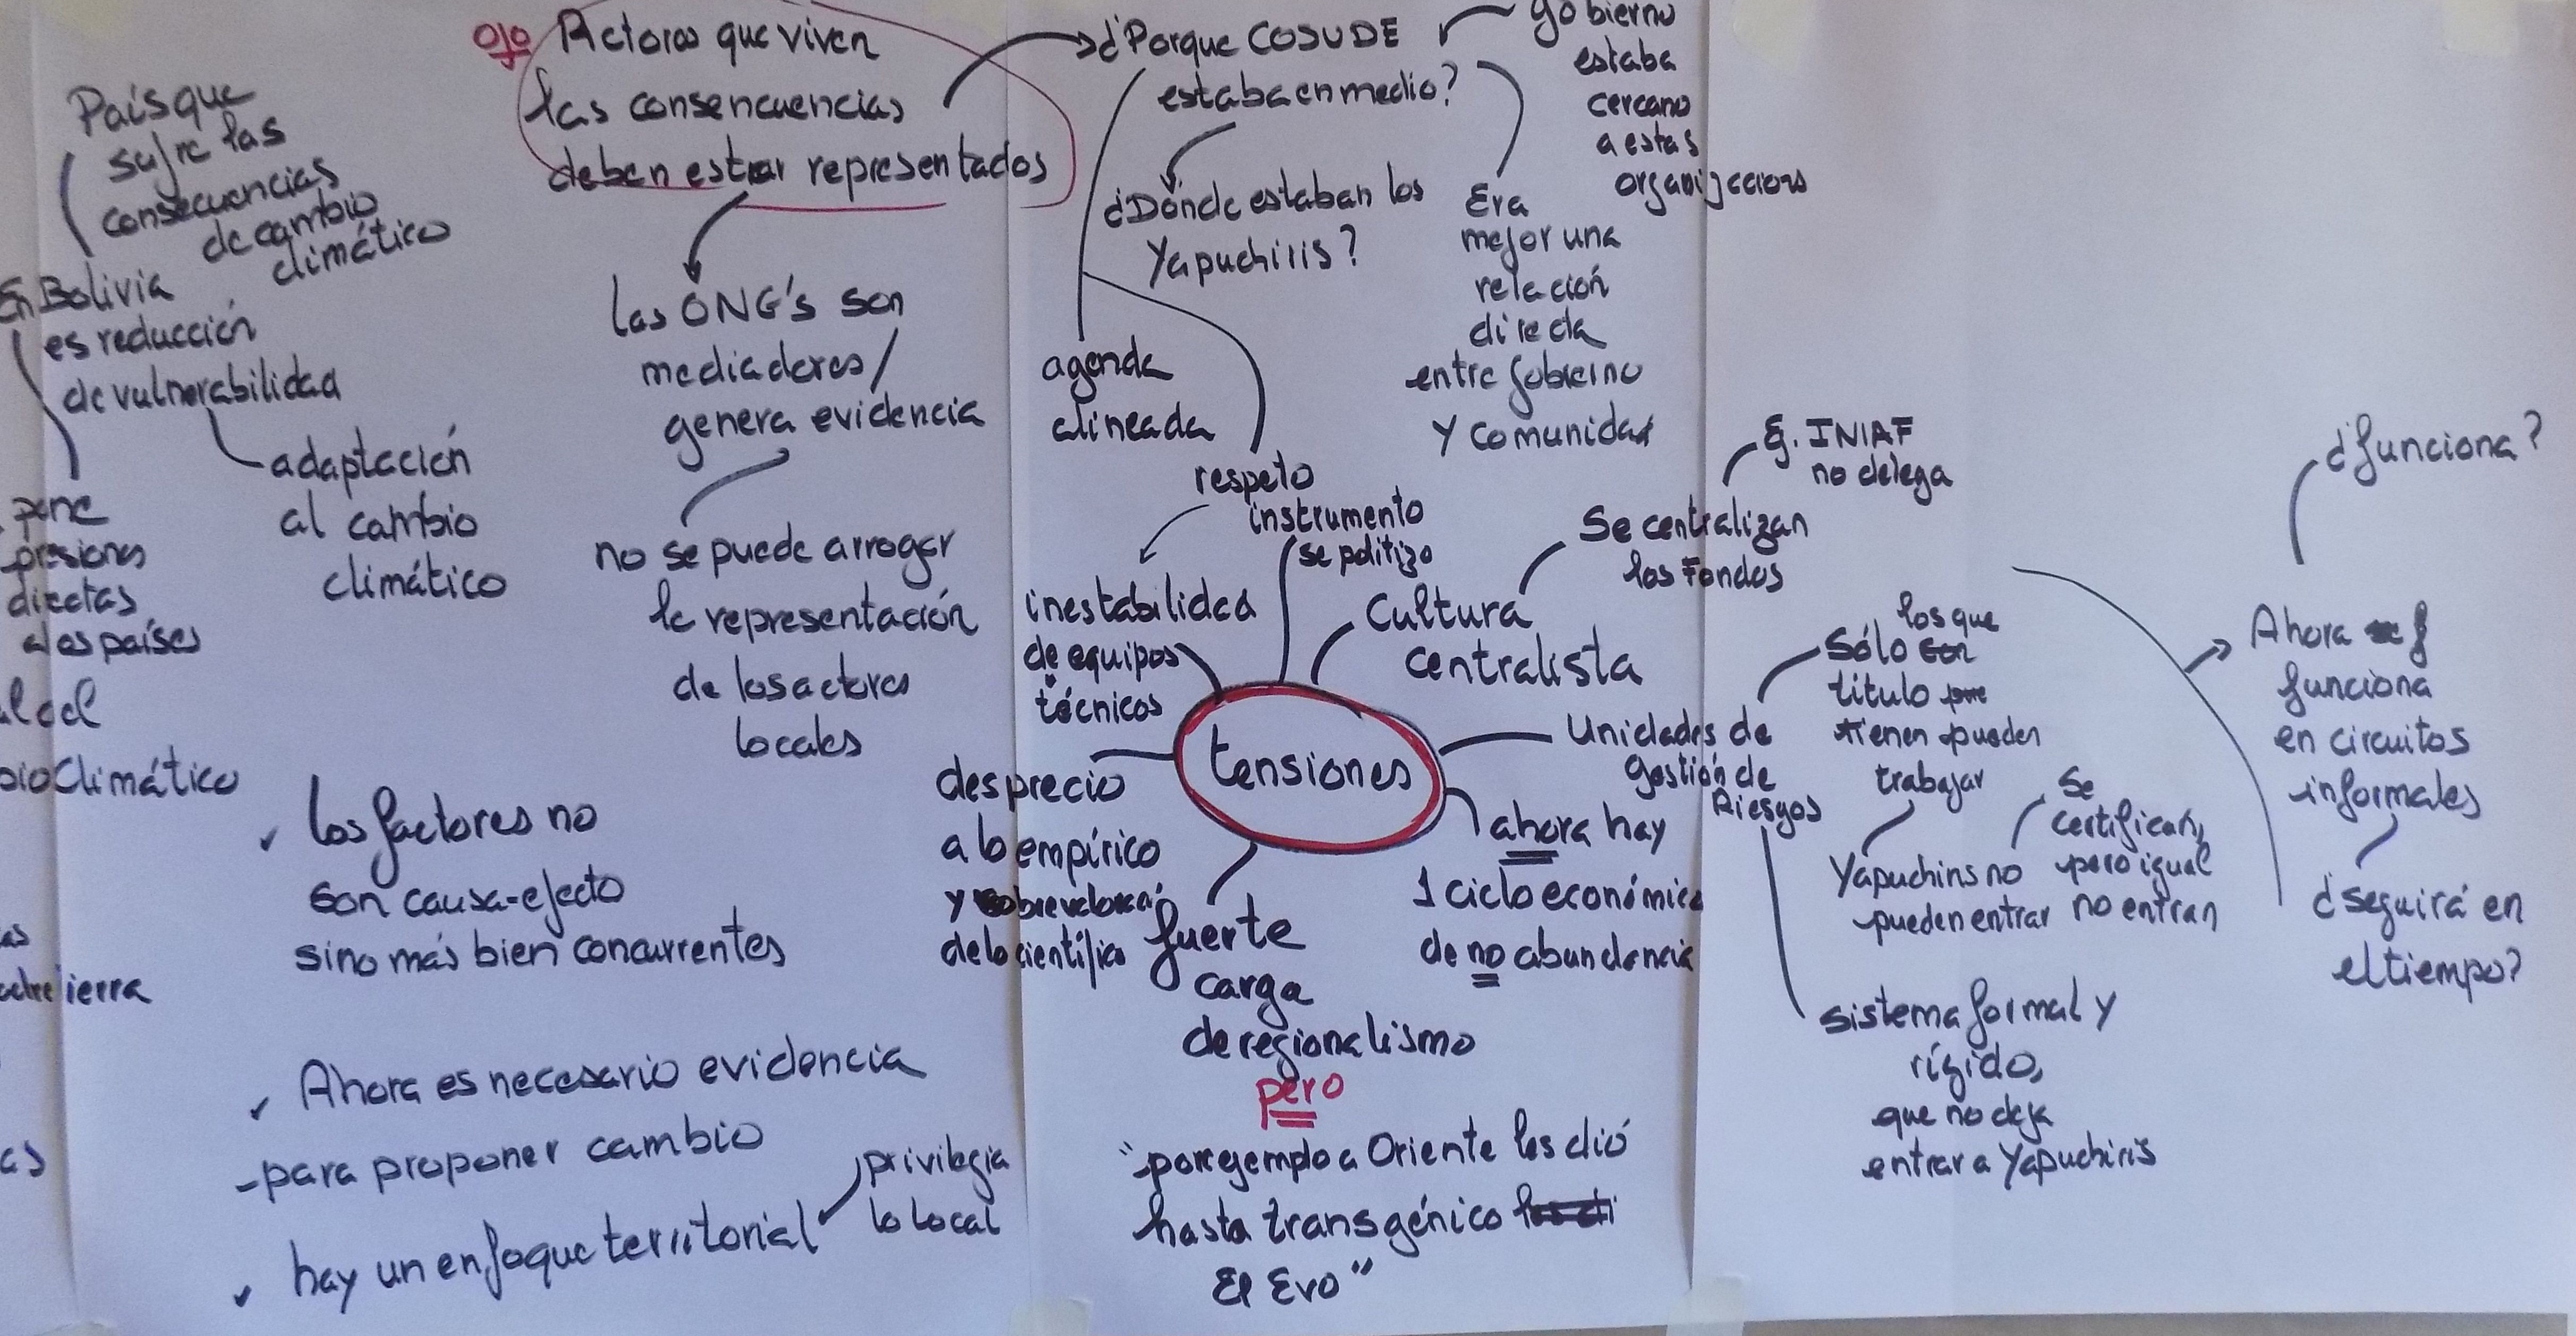 País que
sufre las
consecuencias
de cambio
climático
En Bolivia
es reducción
de vulnerabilidad
adaptación
al cambio
climático
pone
presiones
directas
a los países
Climático
ojo Actores que viven
las consencuencias
deben estar representados
las ONG's son
mediadores/
genera evidencia
no se puede arrogar
la representación
de los actores
locales
✓ los factores no
son causa-efecto
sino más bien concurrentes
✓ Ahora es necesario evidencia
para proponer cambio
✓ hay un enfoque territorial
privilegia
lo local
¿Porque COSUDE
estaba en medio?
gobierno
estaba
cercano
a estas
¿Dónde estaban los
Yapuchiris?
Era
mejor una
relación
directa
entre gobierno
y comunidad
agenda
alineada
respeto
instrumento
se politizo
inestabilidad
de equipos
técnicos
Cultura
centralista
Se centralizan
los Fondos
INIAF
no delega
tensiones
desprecio
a lo empírico
y
de lo científico
fuerte
carga
de regionalismo
pero
"por ejemplo a Oriente les dió
hasta transgénico
El Evo"
ahora hay
1 ciclo económico
de no abundancia
Unidades de
gestión de
Riesgos
los que
Sólo
título
tienen pueden
trabajar
Yapuchiris no
pueden entrar
Se
certifican,
pero igual
no entran
sistema formal y
rígido,
que no deja
entrar a Yapuchiris
¿funciona?
Ahora
funciona
en circuitos
informales
¿seguirá en
el tiempo?